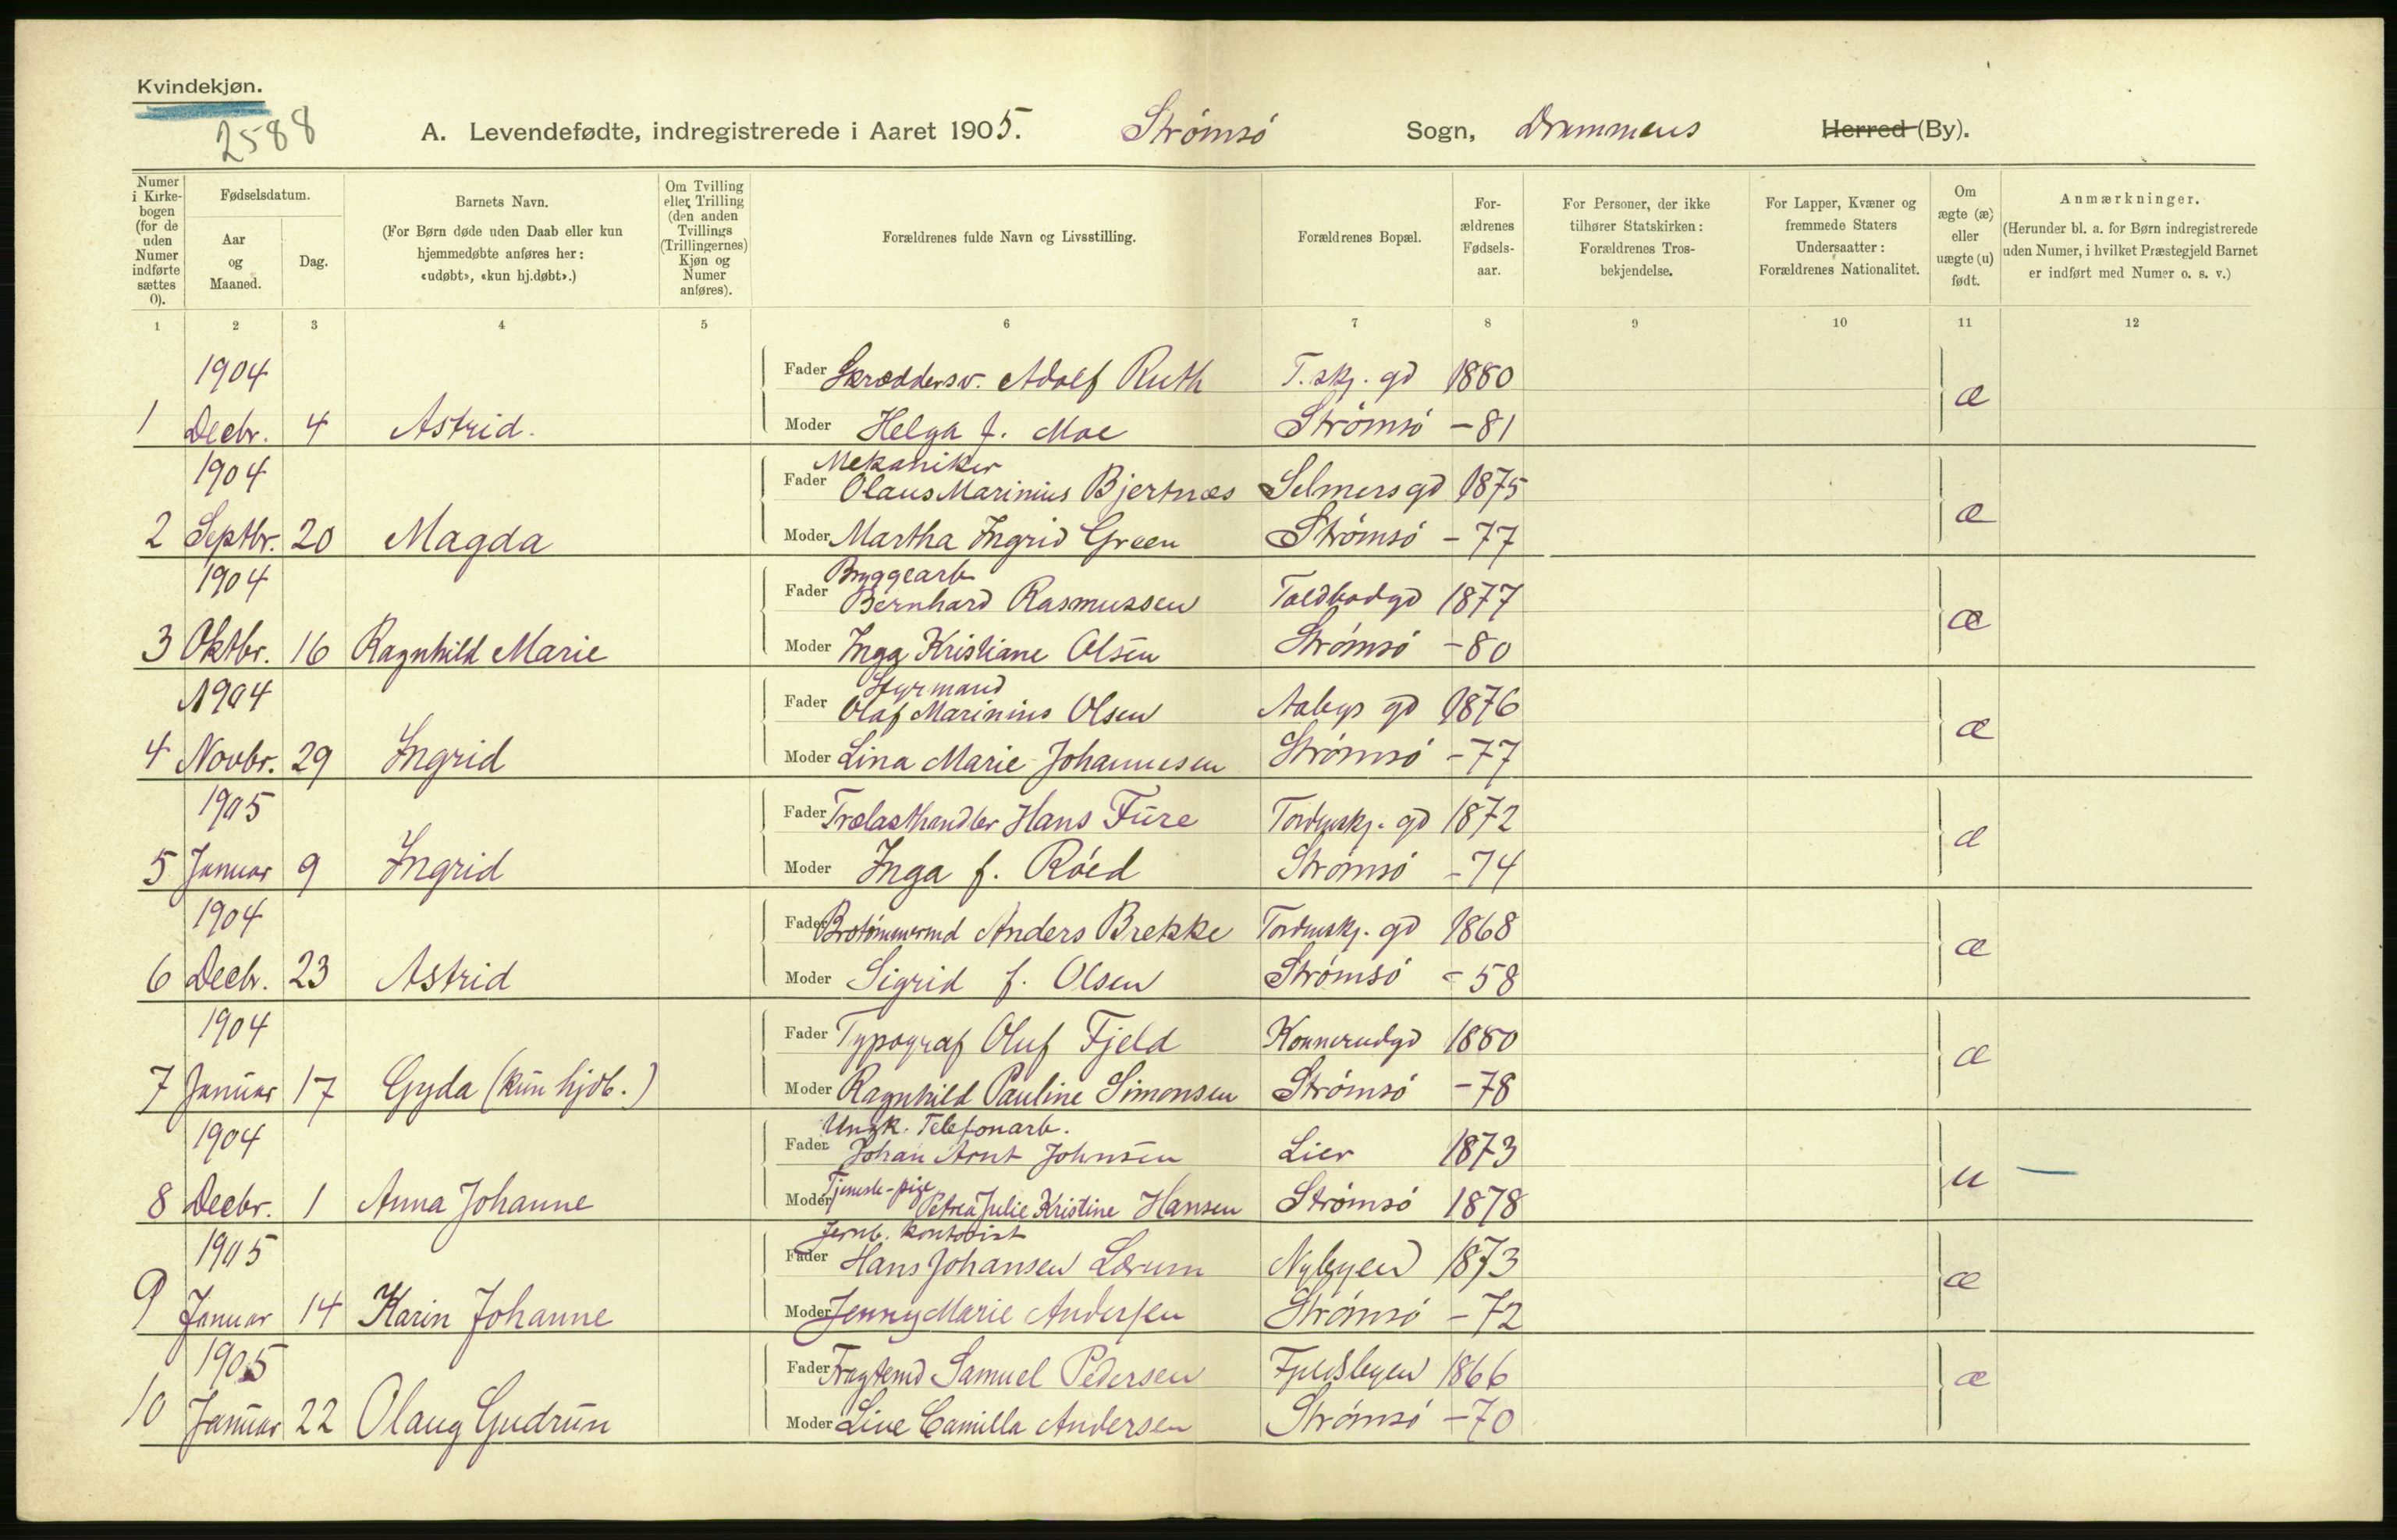 Kvindekjøn.
2588
A. Levendefødte, indregistrerede i Aaret 1905. Strømsø Sogn, Drammens Herred (By).
Numer i Kirkebogen (for de uden Numer indførte sættes 0).
Fødselsdatum.
Aar og Maaned.
Dag.
Barnets Navn.
(For Børn døde uden Daab eller kun hjemmedøbte anføres her: «udøbt», «kun hj.døbt».)
Om Tvilling eller Trilling (den anden Tvillings (Trillingernes) Kjøn og Numer anføres).
Forældrenes fulde Navn og Livsstilling.
Forældrenes Bopæl.
Forældrenes Fødselsaar.
For Personer, der ikke tilhører Statskirken: Forældrenes Trosbekjendelse.
For Lapper, Kvæner og fremmede Staters Undersaatter: Forældrenes Nationalitet.
Om ægte (æ) eller uægte (u) født.
Anmærkninger.
(Herunder bl. a. for Børn indregistrerede uden Numer, i hvilket Præstegjeld Barnet er indført med Numer o. s. v.)
1 2 3 4 5 6 7 8 9 10 11 12
1904 Fader Skræddersv. Adolf Ruth T.skj. gd 1880 æ
1 Decbr. 4 Astrid. Moder Helga f. Moe Strømsø - 81
Mekaniker
1904 Fader Olaus Marinius Bjertnæs Selmersgd 1875 æ
2 Septbr. 20 Magda Moder Martha Ingrid Green Strømsø - 77
Bryggearb
1904 Fader Bernhard Rasmussen Toldbodgd 1877 æ
3 Oktbr. 16 Ragnhild Marie Moder Inga Kristiane Olsen Strømsø - 80
Styrmand
1904 Fader Olaf Marinius Olsen Aabys gd 1876 æ
4 Novbr. 29 Ingrid Moder Lina Marie Johannesen Strømsø - 77
1905 Fader Trælasthandler Hans Fure Tordenskj. gd 1872 æ
5 Januar 9 Ingrid Moder Inga f. Røed Strømsø - 74
1904 Fader Anders Brekke Tordenskj. gd 1868 æ
6 Decbr. 23 Astrid Moder Sigrid f. Olsen Strømsø - 58
1904 Fader Typograf Oluf Fjeld Konnerudgd 1880 æ
7 Januar 17 Gyda (kun hjdb.) Moder Ragnhild Pauline Simonsen Strømsø - 78
Ungk. Telefonarb.
1904 Fader Johan Arnt Johnsen Lier 1873 u —
8 Decbr. 1 Anna Johanne Moder Tjeneste-pige Petrea Julie Kristine Hansen Strømsø 1878
Jernb. kontorist
1905 Fader Hans Johansen Lerum Nybyen 1873 æ
9 Januar 14 Karin Johanne Moder Jenny Marie Andersen Strømsø - 72
1905 Fader Fragtemd Samuel Pedersen Fjeldsbyen 1866 æ
10 Januar 22 Olaug Gudrun Moder Live Camilla Andersen Strømsø - 70